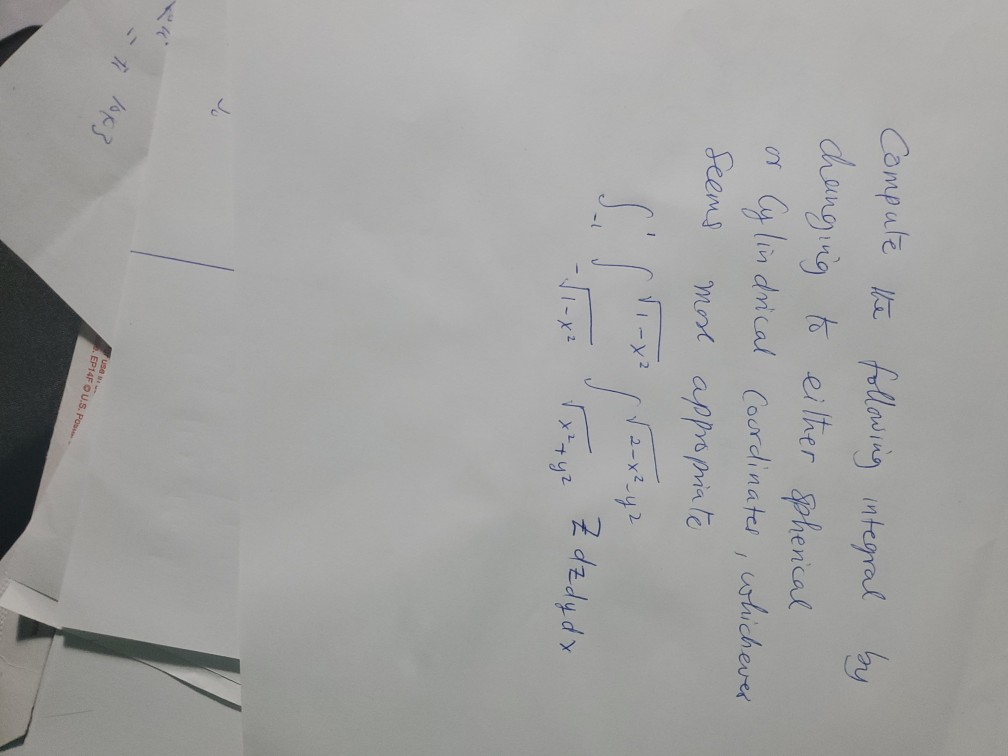 Compute the following integral by
changing to either spherical
or Cylindrical Coordinates, whichever
seems most appropriate
∫_{-1}^{1} ∫_{-√(1-x²)}^{√(1-x²)} ∫_{√(x²+y²)}^{√(2-x²-y²)} z dz dy dx
EP14F © U.S. Postal